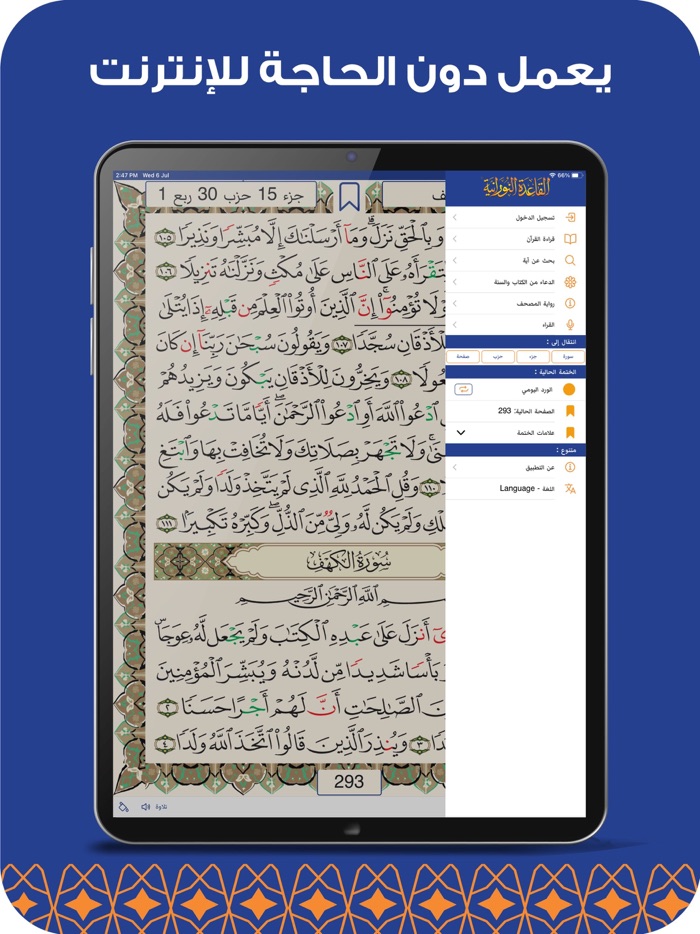 يعمل دون الحاجة للإنترنت
2:47 PM Wed 6 Jul
66%
جزء 15 حزب 30 ربع 1
وَبِالْحَقِّ نَزَلَ وَمَا أَرْسَلْنَاكَ إِلَّا مُبَشِّرًا وَنَذِيرًا ١٠٥
عَلَى النَّاسِ عَلَىٰ مُكْثٍ وَنَزَّلْنَاهُ تَنزِيلًا ١٠٦
وْلَا تُؤْمِنُوا إِنَّ الَّذِينَ أُوتُوا الْعِلْمَ مِن قَبْلِهِ إِذَا يُتْلَىٰ
لِلْأَذْقَانِ سُجَّدًا ١٠٧ وَيَقُولُونَ سُبْحَٰنَ رَبِّنَا إِن كَانَ
١٠٨ وَيَخِرُّونَ لِلْأَذْقَانِ يَبْكُونَ وَيَزِيدُهُمْ
ادْعُوا اللَّهَ أَوِ ادْعُوا الرَّحْمَٰنَ أَيًّا مَّا تَدْعُوا فَلَهُ
وَلَا تَجْهَرْ بِصَلَاتِكَ وَلَا تُخَافِتْ بِهَا وَابْتَغِ
١١٠ وَقُلِ الْحَمْدُ لِلَّهِ الَّذِي لَمْ يَتَّخِذْ وَلَدًا وَلَمْ يَكُن
لْكِ وَلَمْ يَكُن لَّهُ وَلِيٌّ مِّنَ الذُّلِّ وَكَبِّرْهُ تَكْبِيرًا ١١١
سُورَةُ الْكَهْفِ
ـسْمِ اللَّهِ الرَّحْمَٰنِ الرَّحِيمِ
أَنزَلَ عَلَىٰ عَبْدِهِ الْكِتَٰبَ وَلَمْ يَجْعَل لَّهُ عِوَجًا
بَأْسًا شَدِيدًا مِّن لَّدُنْهُ وَيُبَشِّرَ الْمُؤْمِنِينَ
نَ الصَّٰلِحَٰتِ أَنَّ لَهُمْ أَجْرًا حَسَنًا ٢
٣ وَيُنذِرَ الَّذِينَ قَالُوا اتَّخَذَ اللَّهُ وَلَدًا ٤
293
تلاوة
القاعدة النورانية
تسجيل الدخول
قراءة القرآن
بحث عن آية
الدعاء من الكتاب والسنة
رواية المصحف
القراء
انتقال إلى :
سورة جزء حزب صفحة
الختمة الحالية :
الورد اليومي
الصفحة الحالية: 293
علامات الختمة
متنوع :
عن التطبيق
اللغة - Language